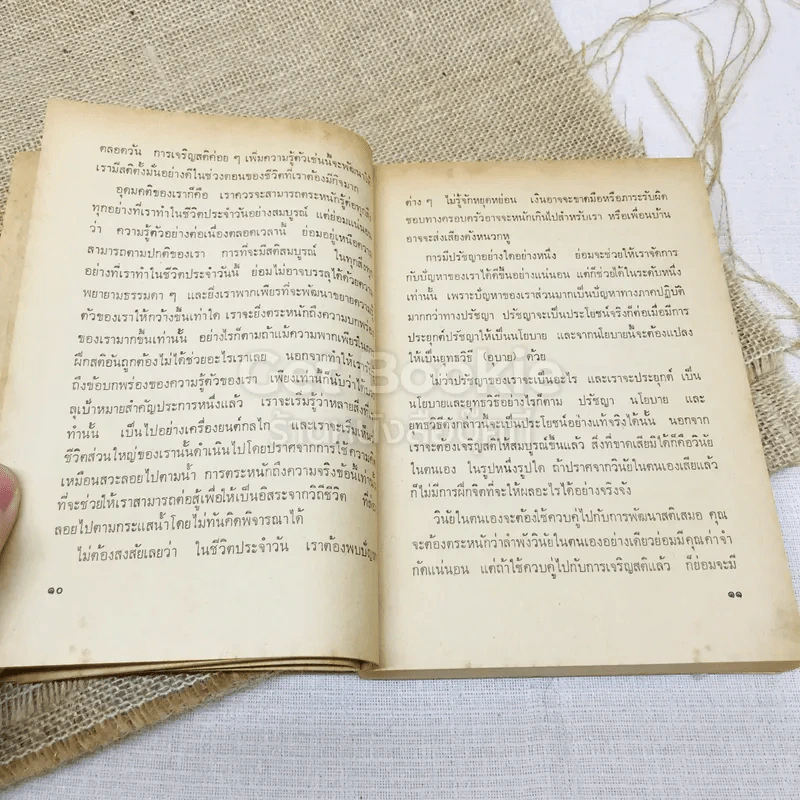 ตลอดวัน การเจริญสติค่อย ๆ เพิ่มความรู้ตัวเช่นนี้จะพัฒนาให้
เรามีสติตั้งมั่นอย่างดีในช่วงตอนของชีวิตที่เราต้องมีกิจมาก
อุดมคติของเราก็คือ เราควรจะสามารถตระหนักรู้ต่อทุกสิ่ง
ทุกอย่างที่เราทำในชีวิตประจำวันอย่างสมบูรณ์ แต่ย่อมแน่นอน
ว่า ความรู้ตัวอย่างต่อเนื่องตลอดเวลานี้ ย่อมอยู่เหนือความ
สามารถตามปกติของเรา การที่จะมีสติสมบูรณ์ ในทุกสิ่งทุก
อย่างที่เราทำในชีวิตประจำวันนี้ ย่อมไม่อาจบรรลุได้ด้วยความ
พยายามธรรมดา ๆ และยิ่งเราพากเพียรที่จะพัฒนาขยายความรู้
ตัวของเราให้กว้างขึ้นเท่าใด เราก็ยิ่งจะตระหนักถึงความบกพร่อง
ของเรามากขึ้นเท่านั้น อย่างไรก็ตามถ้าแม้ความพากเพียรในการ
ฝึกสติอันถูกต้องไม่ได้ช่วยอะไรเราเลย นอกจากทำให้เรา
ถึงข้อบกพร่องของความรู้ตัวของเรา เพียงเท่านี้ก็นับว่าได้
ลุเป้าหมายสำคัญประการหนึ่งแล้ว เราจะเริ่มรู้ว่าหลายสิ่งที่
ทำนั้น เป็นไปอย่างเครื่องยนต์กลไก และเราจะเริ่มเห็น
ชีวิตส่วนใหญ่ของเรานั้นดำเนินไปโดยปราศจากการใช้ความคิด
เหมือนสวะลอยไปตามน้ำ การตระหนักถึงความจริงข้อนี้เท่านั้น
ที่จะช่วยให้เราสามารถต่อสู้เพื่อให้เป็นอิสระจากวิถีชีวิต ที่
ลอยไปตามกระแสน้ำโดยไม่ทันคิดพิจารณาได้
ไม่ต้องสงสัยเลยว่า ในชีวิตประจำวัน เราต้องพบปัญหา
๑๐
ต่าง ๆ ไม่รู้จักหยุดหย่อน เงินอาจจะขาดมือหรือภาระรับผิด
ชอบทางครอบครัวอาจจะหนักเกินไปสำหรับเรา หรือเพื่อนบ้าน
อาจจะส่งเสียงดังหนวกหู
การมีปรัชญาอย่างใดอย่างหนึ่ง ย่อมจะช่วยให้เราจัดการ
กับปัญหาของเราได้ดีขึ้นอย่างแน่นอน แต่ก็ช่วยได้ในระดับหนึ่ง
เท่านั้น เพราะปัญหาของเราส่วนมากเป็นปัญหาทางภาคปฏิบัติ
มากกว่าทางปรัชญา ปรัชญาจะเป็นประโยชน์จริงก็ต่อเมื่อมีการ
ประยุกต์ปรัชญาให้เป็นนโยบาย และจากนโยบายนี้จะต้องแปลง
ให้เป็นยุทธวิธี (อุบาย) ด้วย
ไม่ว่าปรัชญาของเราจะเป็นอะไร และเราจะประยุกต์ เป็น
นโยบายและยุทธวิธีอย่างไรก็ตาม ปรัชญา นโยบาย และ
ยุทธวิธีดังกล่าวนี้จะเป็นประโยชน์อย่างแท้จริงได้นั้น นอกจาก
เราจะต้องเจริญสติให้สมบูรณ์ขึ้นแล้ว สิ่งที่ขาดเสียมิได้ก็คือวินัย
ในตนเอง ในรูปหนึ่งรูปใด ถ้าปราศจากวินัยในตนเองเสียแล้ว
ก็ไม่มีการฝึกจิตที่จะให้ผลอะไรได้อย่างจริงจัง
วินัยในตนเองจะต้องใช้ควบคู่ไปกับการพัฒนาสติเสมอ คุณ
จะต้องตระหนักว่าลำพังวินัยในตนเองอย่างเดียวย่อมมีคุณค่าจำ
กัดแน่นอน แต่ถ้าใช้ควบคู่ไปกับการเจริญสติแล้ว ก็ย่อมจะมี
๑๑